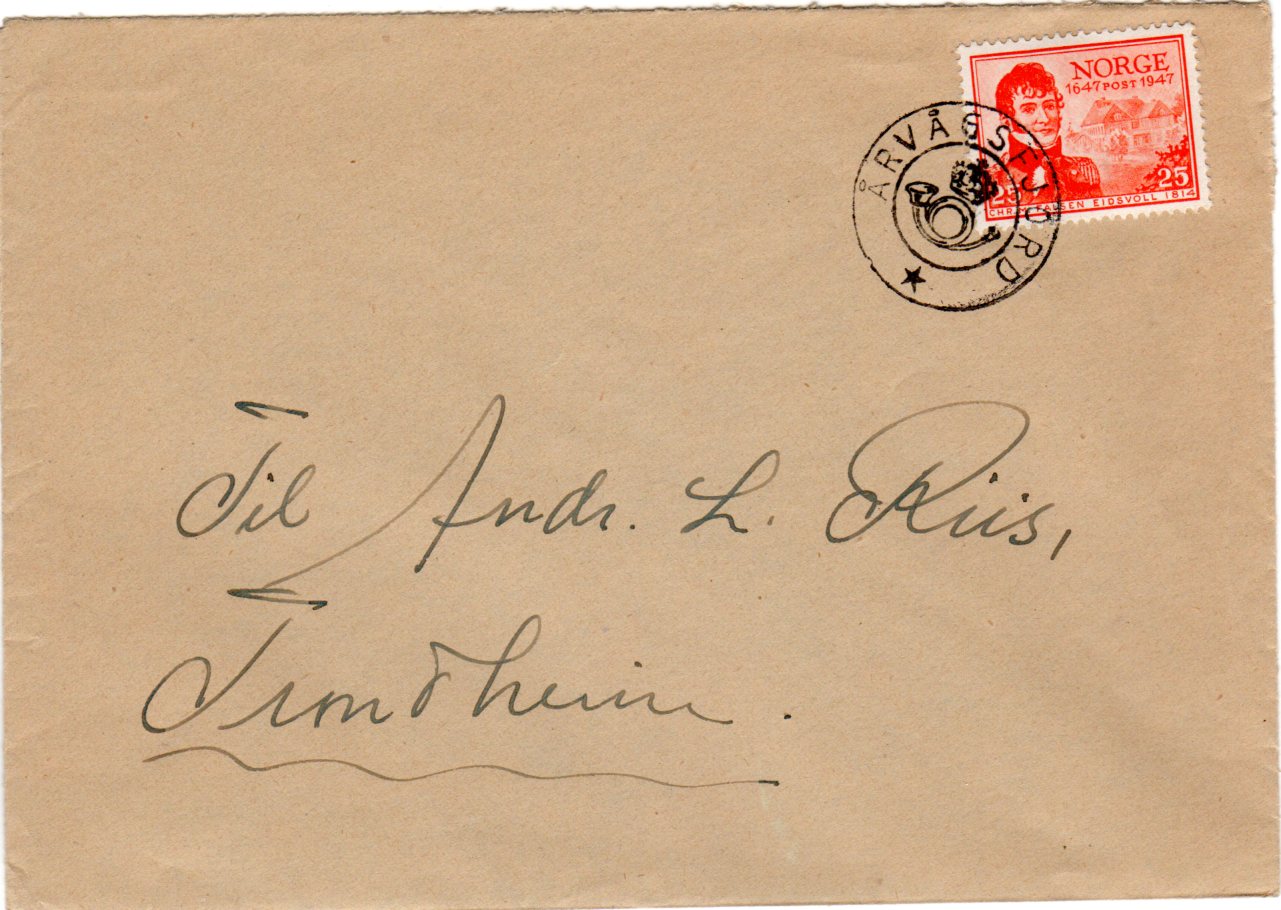 NORGE
1647 POST 1947
25 25
CHR. FALSEN EIDSVOLL 1814
ÅRVÅGSFJORD
Til Andr. L. Riis,
Trondheim.